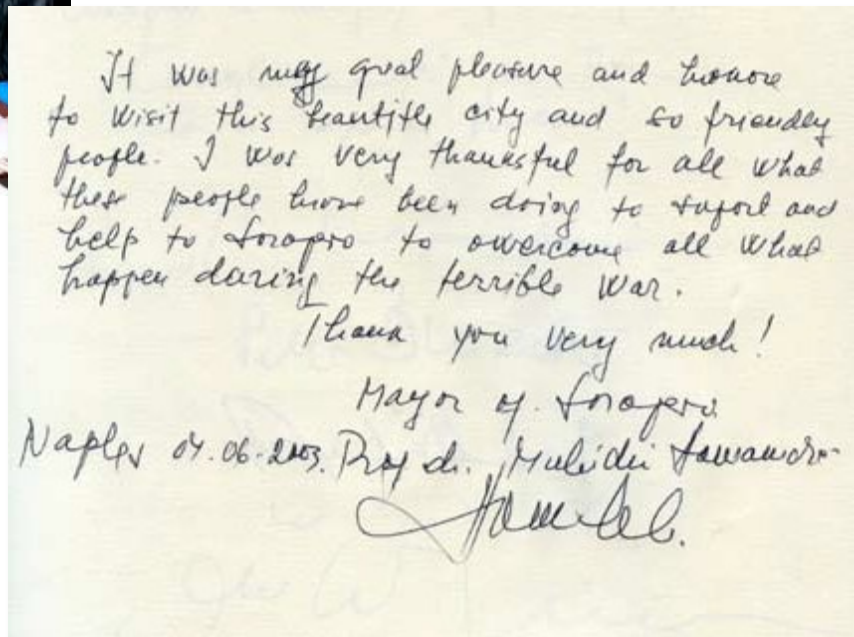 It was my great pleasure and honore
to wisit this beautifle city and so friendly
people. I was very thanksful for all what
these people have been doing to suport and
help to Sarajevo to owercome all what
happen daring the terrible war.
Thank you very much!
Mayor of Sarajevo
Naples 04.06.2003. Prof dr. Muhidin Hamamdžić